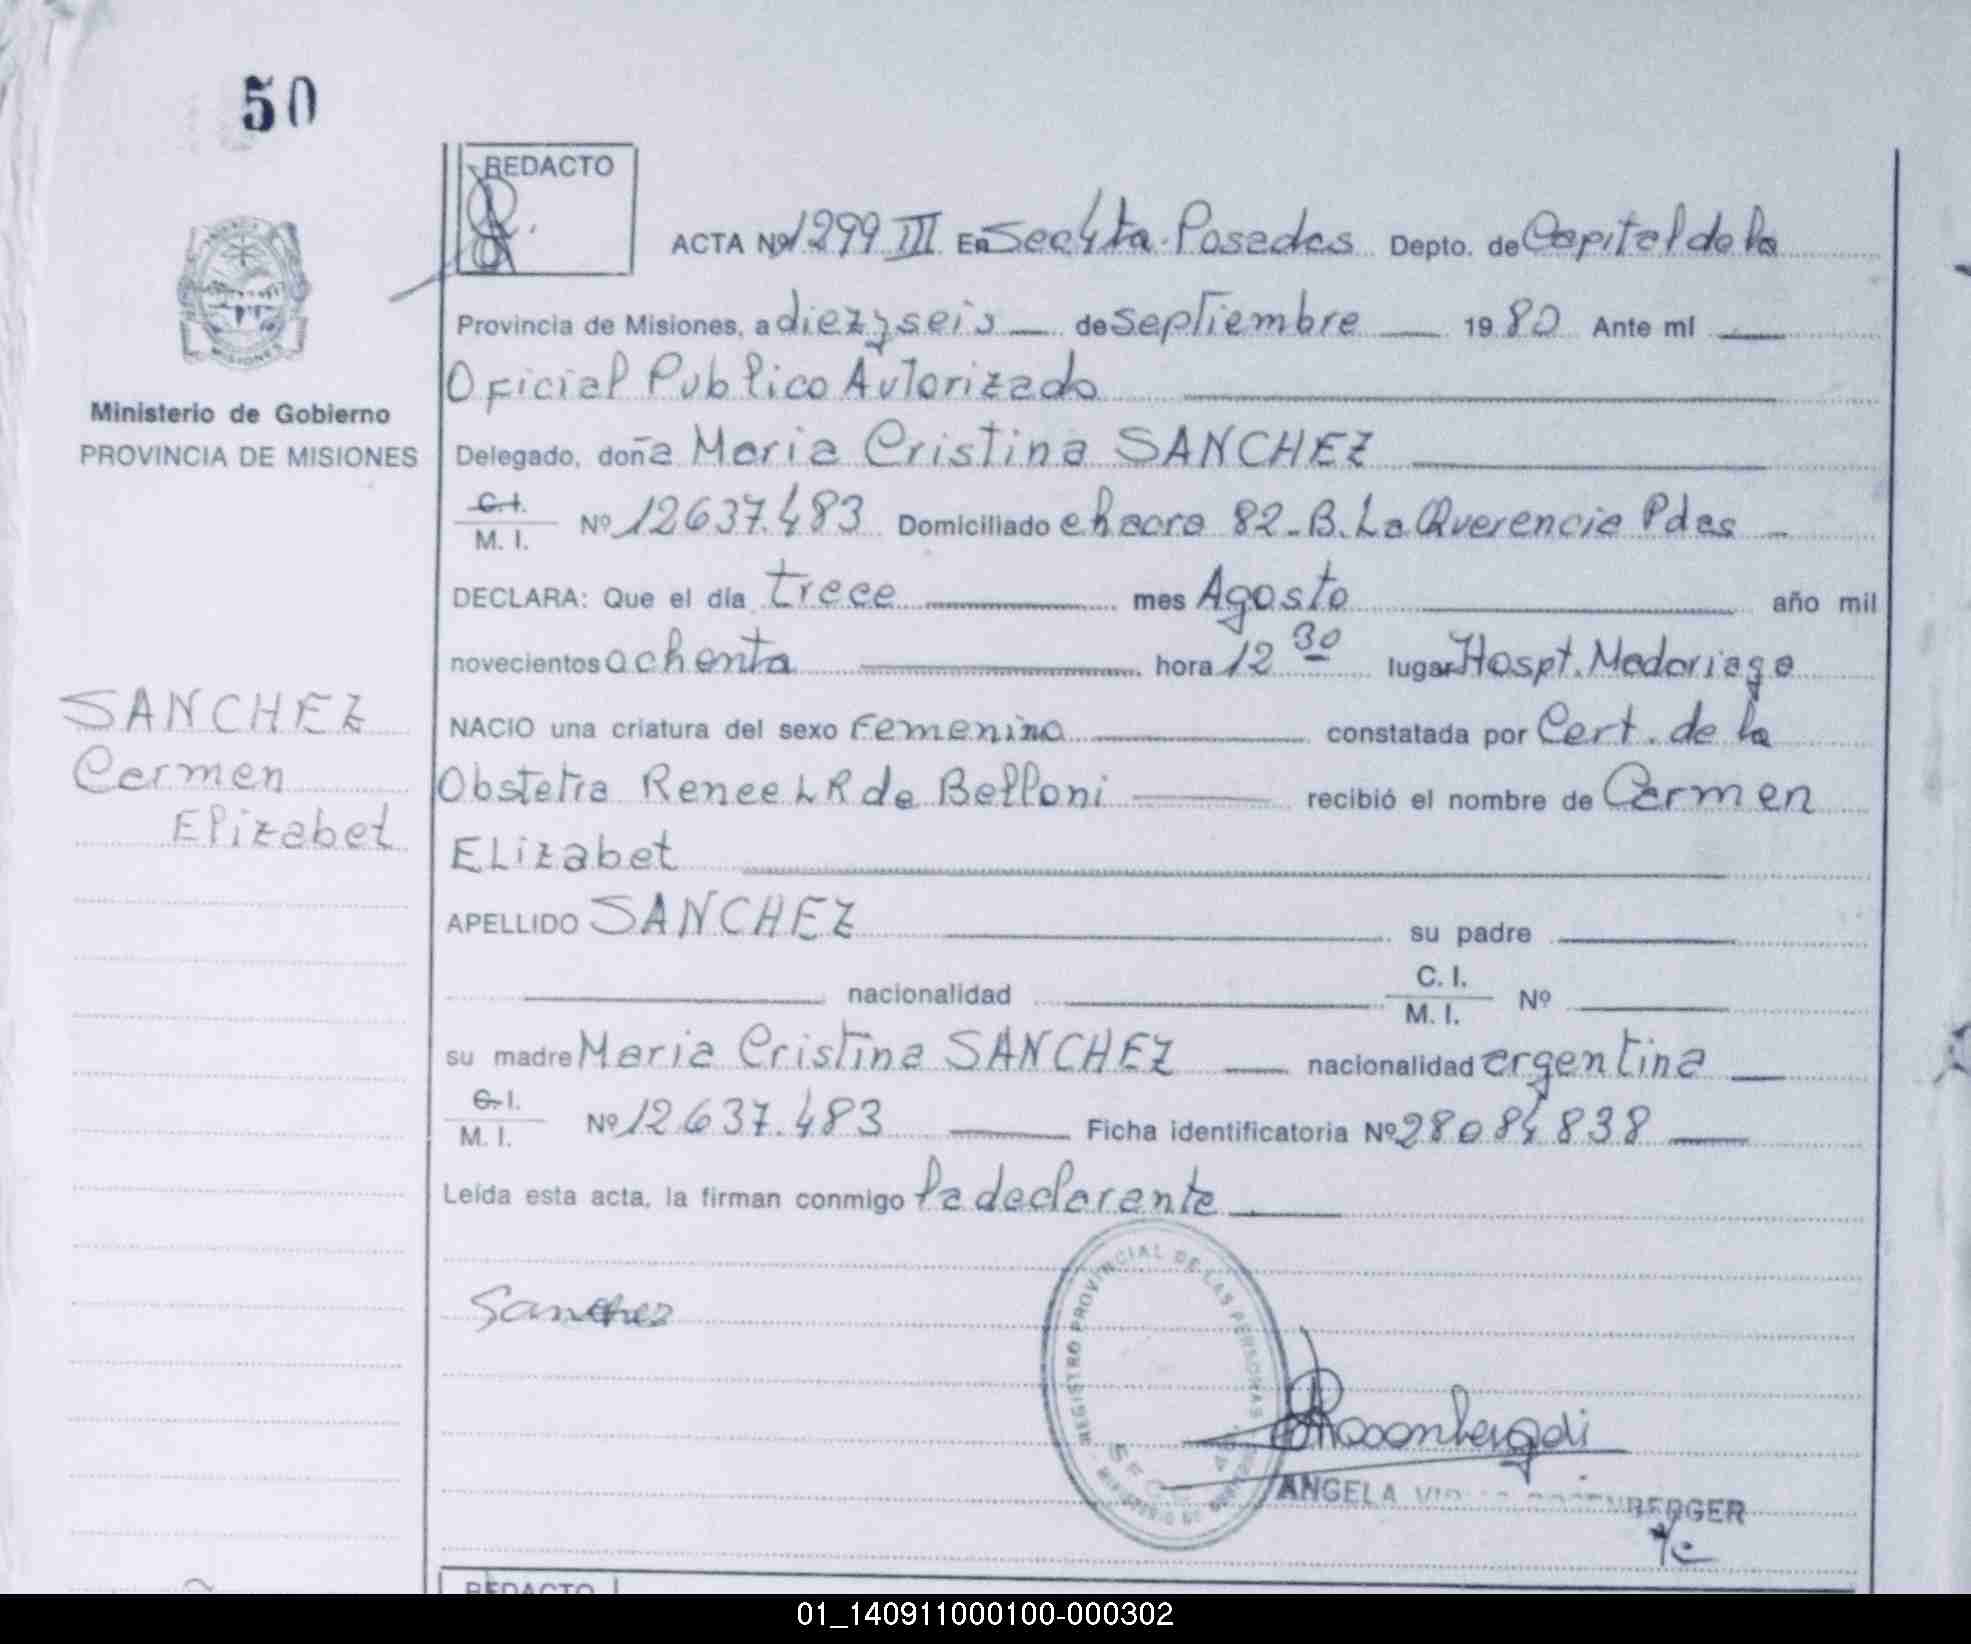 50
REDACTO
ACTA Nº 1299 III En Sec 4ta. Posadas Depto. de Capital de la
Provincia de Misiones, a diez y seis de septiembre 1980 Ante mí
Oficial Publico Autorizado
Ministerio de Gobierno
PROVINCIA DE MISIONES
Delegado, doña Maria Cristina SANCHEZ
C.I.
M. I. Nº 12637.483 Domiciliado chacra 82-B. La Querencia Pdas
DECLARA: Que el día trece mes Agosto año mil
novecientos ochenta hora 12 30 lugar Hospt. Madariaga
SANCHEZ
Carmen
Elizabet
NACIO una criatura del sexo Femenino constatada por Cert. de la
Obstetra Renee L R de Belloni recibió el nombre de Carmen
ELizabet
APELLIDO SANCHEZ su padre
nacionalidad C. I.
M. I. Nº
su madre Maria Cristina SANCHEZ nacionalidad argentina
C. I.
M. I. Nº 12637.483 Ficha identificatoria Nº 28084838
Leída esta acta, la firman conmigo la declarante
Sanchez
REGISTRO PROVINCIAL DE LAS PERSONAS
ANGELA BERGER
REDACTO
01_140911000100-000302